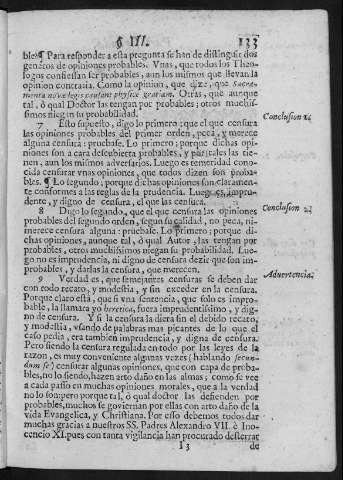 § III.
133
ble?¶ Para responder a esta pregunta se han de distinguir dos
generos de opiniones probables. Vnas, que todos los Theo-
logos confiessan ser probables, aun los mismos que llevan la
opinion contraria. Como la opinion, que dize, que Sacra-
menta novæ legis causant physicè gratiam. Otras, que aunque
tal, ò qual Doctor las tengan por probables; otros muchis-
simos niegan su probabilidad.
7 Esto supuesto, digo lo primero: que el que censura
las opiniones probables del primer orden, peca, y merece
alguna censura: pruebase. Lo primero: porque dichas opi-
niones son a cara descubierta probables, y por tales las tie-
nen, aun los mismos adversarios. Luego es temeridad cono-
cida censurar vnas opiniones, que todos dizen son proba-
bles.¶ Lo segundo: porque dichas opiniones son claramen-
te conformes a las reglas de la prudencia. Luego es impru-
dente, y digno de censura, el que las censura.
Conclusion 1.
8 Digo lo segundo, que el que censura las opiniones
probables del segundo orden, segun su calidad, no peca, ni
merece censura alguna: pruebase. Lo primero: porque di-
chas opiniones, aunque tal, ò qual Autor, las tengan por
probables, otros muchissimos niegan su probabilidad. Lue-
go no es imprudencia, ni digno de censura dezir que son im-
probables, y darlas la censura, que merecen.
Conclusion 2.
9 Verdad es, que semejantes censuras se deben dar
con todo recato, y modestia, y sin exceder en la censura.
Porque claro està, que si vna sentencia, que solo es impro-
bable, la llamara yo heretica, fuera imprudentissimo, y dig-
no de censura. Y si la censura la diera sin el debido recato,
y modestia, vsando de palabras mas picantes de lo que el
caso pedia, era tambien imprudencia, y digna de censura.
Pero siendo la censura regulada en todo por las leyes de la
razon, es muy conveniente algunas vezes (hablando secun-
dum se) censurar algunas opiniones, que con capa de proba-
bles, no lo siendo, hazen arto daño en las almas; como se vee
a cada passo en muchas opiniones morales, que a la verdad
no lo son: pero porque tal, ò qual doctor las defienden por
probables, muchos se goviernan por ellas con arto daño de la
vida Evangelica, y Christiana. Por esso debemos todos dar
muchas gracias a nuestros SS. Padres Alexandro VII. è Ino-
cencio XI. pues con tanta vigilancia han procurado desterrar
Advertencia.
I 3
de